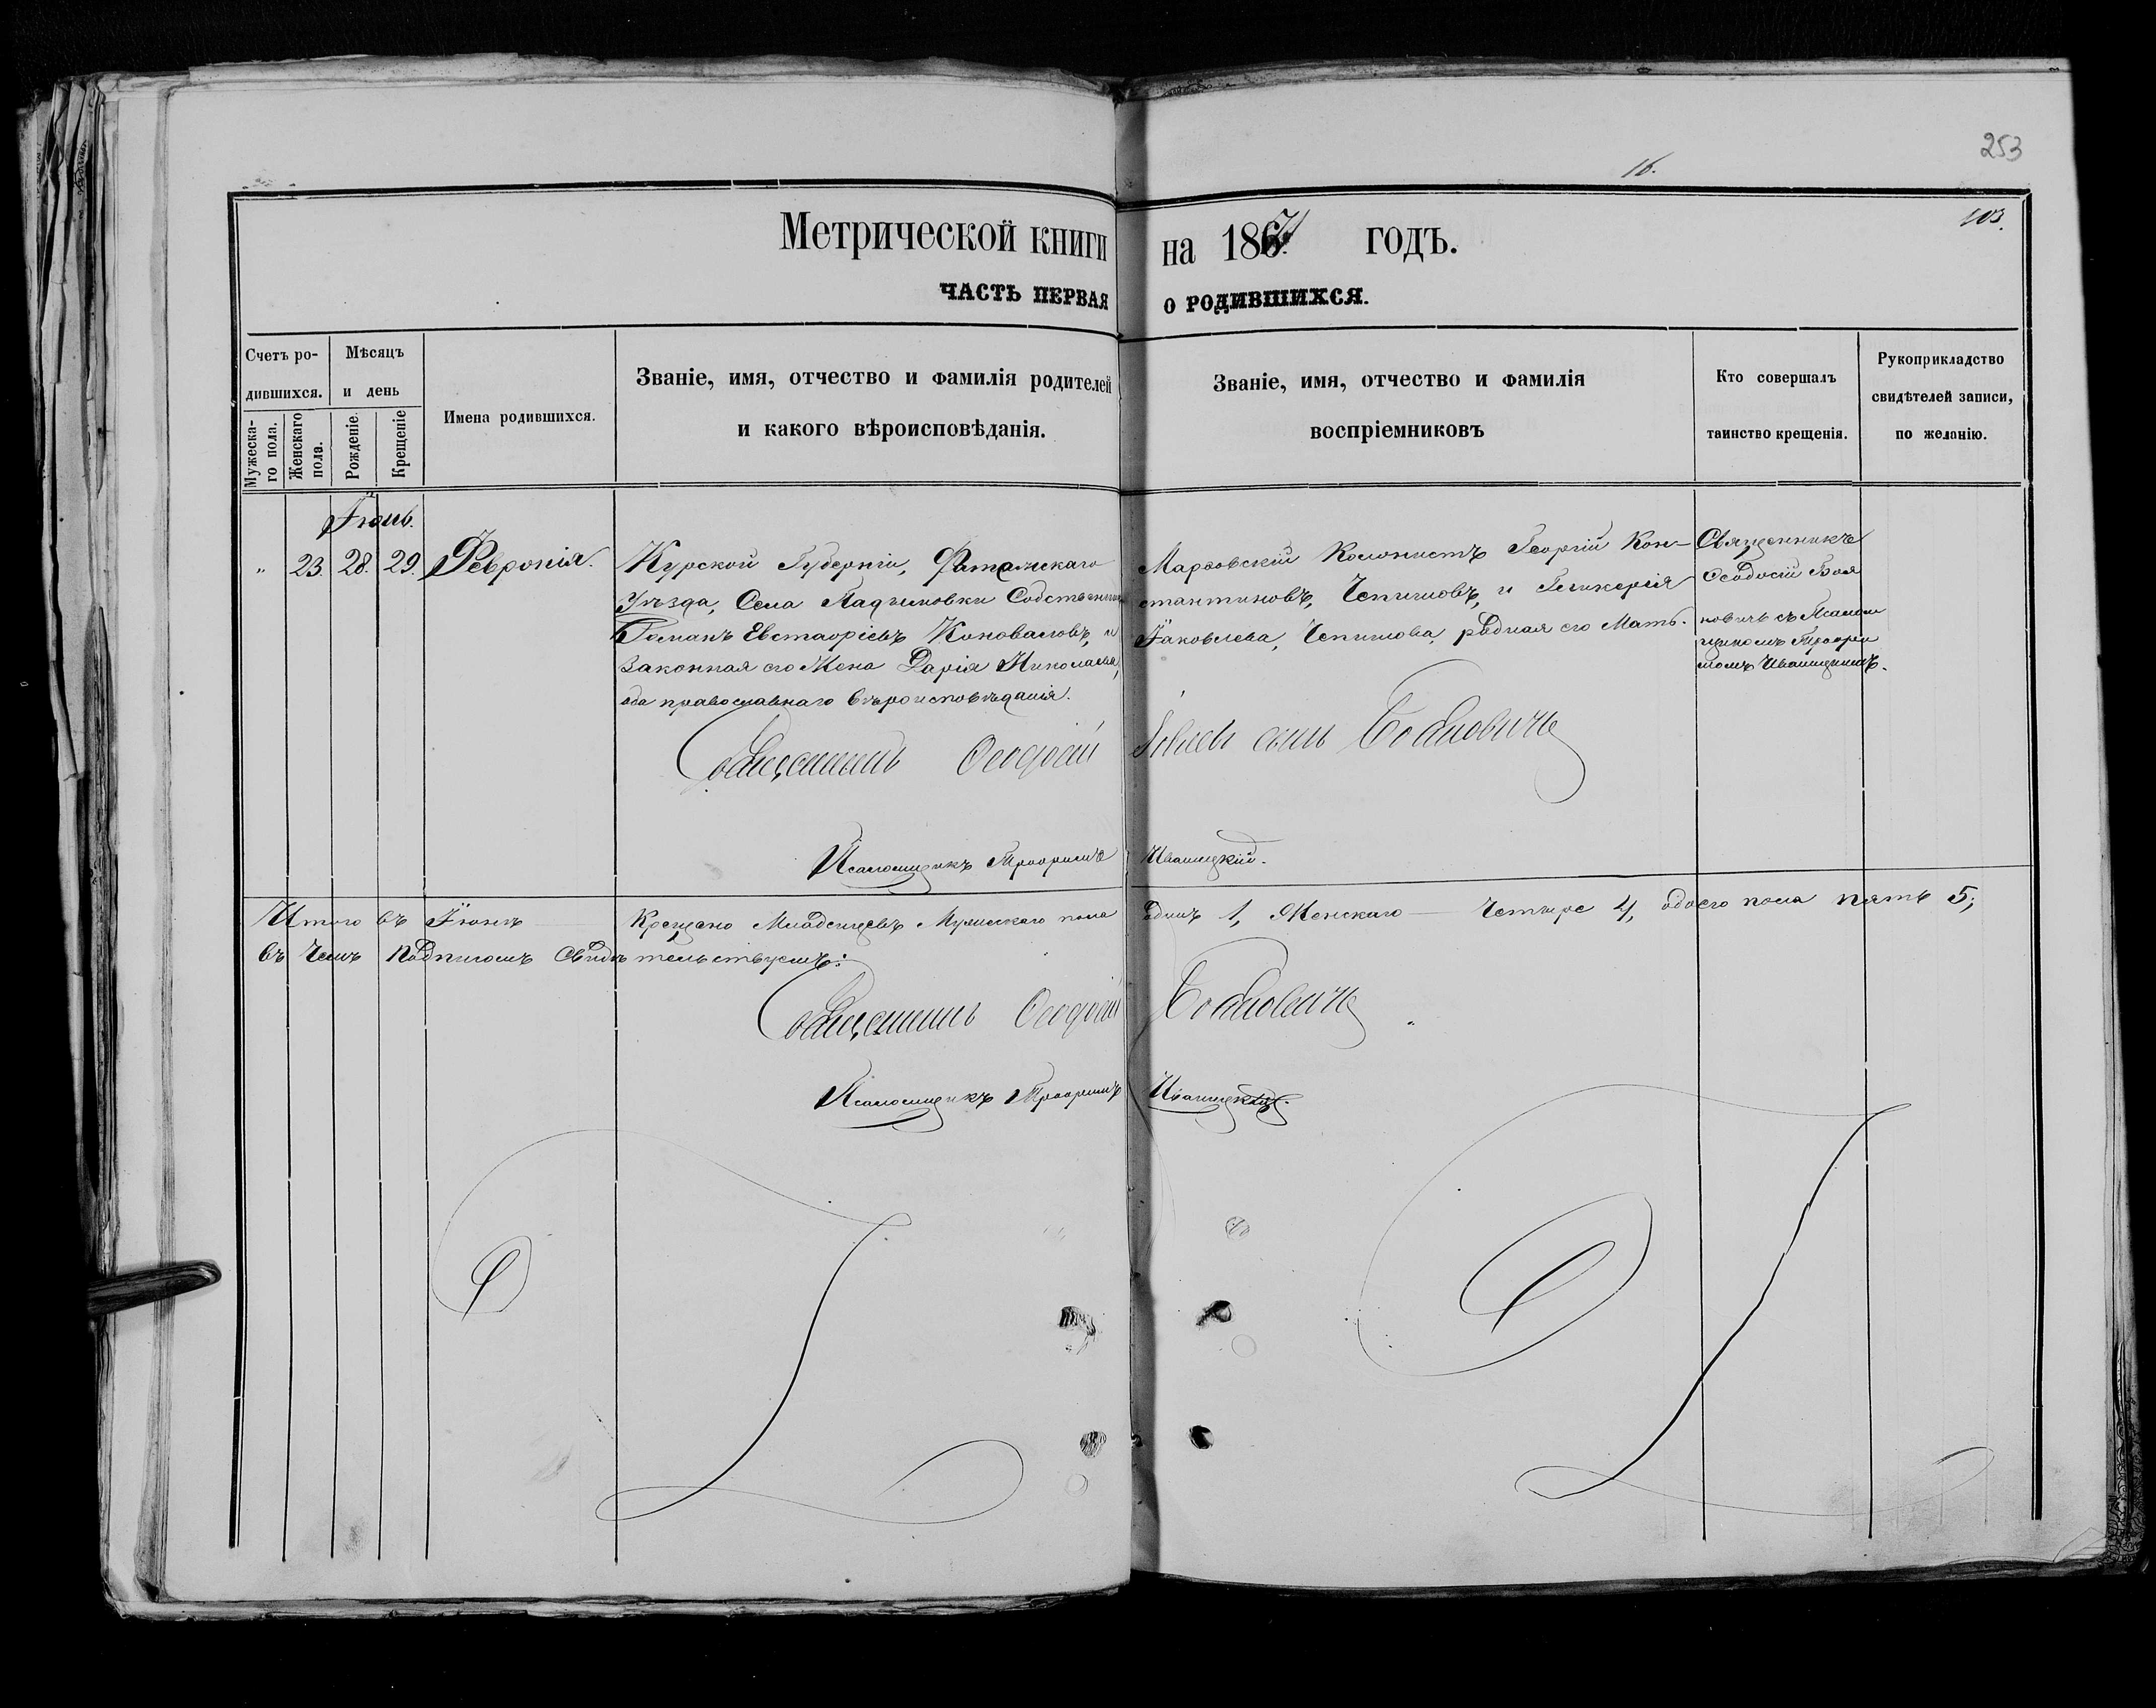 253
16.
103.
Метрической книги на 1871 годъ.
ЧАСТЬ ПЕРВАЯ О РОДИВШИХСЯ.
Счетъ ро-
дившихся.
Мужеска-
го пола.
Женскаго
пола.
Мѣсяцъ
и день
Рожденіе.
Крещеніе
Имена родившихся.
Званіе, имя, отчество и фамилія родителей
и какого вѣроисповѣданія.
Званіе, имя, отчество и фамилія
воспріемниковъ
Кто совершалъ
таинство крещенія.
Рукоприкладство
свидѣтелей записи,
по желанію.
Іюнь.
" 23. 28. 29. Февронія.
Курской Губерніи, Фатежскаго
Уѣзда, Села Ладымовки Собственникъ
Романъ Евстафіевъ Коноваловъ, и
законная его Жена Дарія Николаева,
оба православнаго вѣроисповѣданія.
Колонистъ Георгій Кон-
стантиновъ, Чепишовъ, и Гликерія
Іаковлева, Чепишова, родная его Мать.
Священникъ
Ѳеодосій Боя
новичъ съ Псалом
щикомъ Трофи
момъ Иваницкимъ.
Священникъ Ѳеодосій сынъ Бояновичъ
Псаломщикъ Трофимъ Иваницкій.
Итого въ Іюнѣ Крещено Младенцевъ Мужескаго пола одинъ 1, Женскаго — Четыре 4, обоего пола пять 5;
въ Чемъ Подписомъ Свидѣтельствуемъ:
Священникъ Ѳеодосій Бояновичъ
Псаломщикъ Трофимъ Иваницкій.